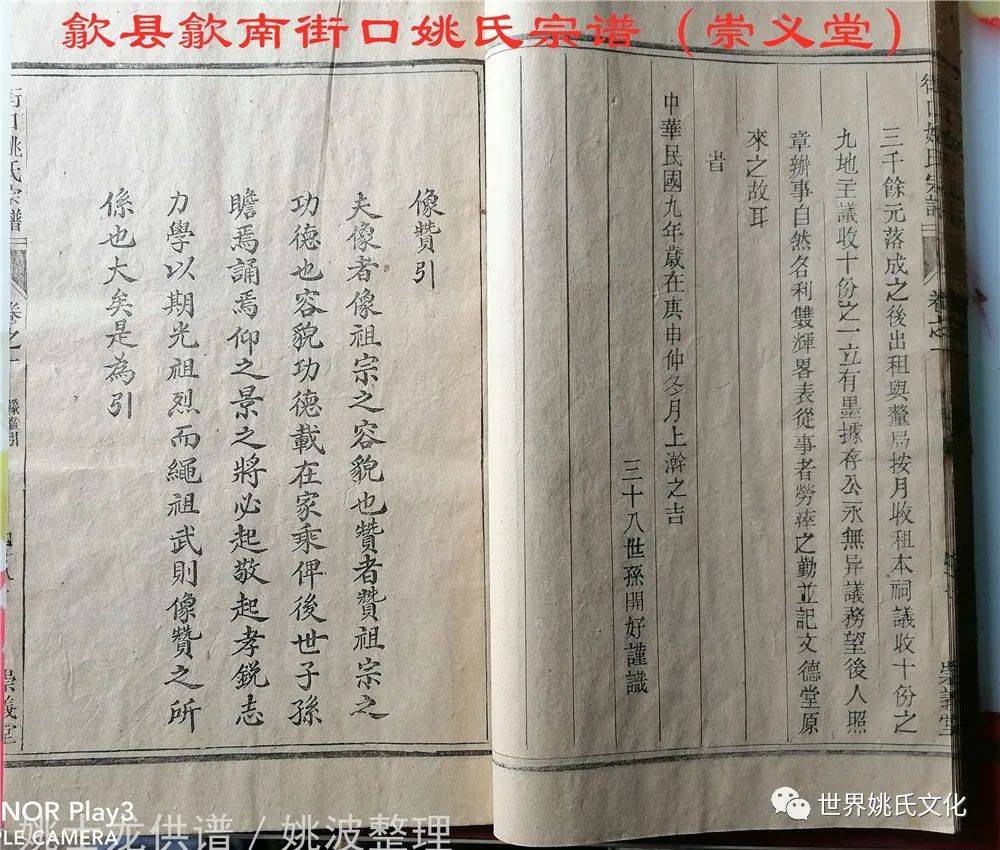 歙县歙南街口姚氏宗谱（崇义堂）
街口姚氏宗譜
三千餘元落成之後出租與釐局按月收租本祠議收十份之
九地主議收十份之一立有墨據存公永無异議務望後人照
章辦事自然名利雙輝畧表從事者勞瘁之勤並記文德堂原
來之故耳
旹
中華民國九年歲在庚申仲冬月上澣之吉
三十八世孫開好謹識
崇義堂
像贊引
夫像者像祖宗之容貌也贊者贊祖宗之
功德也容貌功德載在家乘俾後世子孫
瞻焉誦焉仰之景之將必起敬起孝銳志
力學以期光祖烈而繩祖武則像贊之所
係也大矣是為引
街口姚氏宗譜
卷之一
像贊引
崇義堂
NOR Play3
PLE CAMERA
龙供谱 / 姚波整理
世界姚氏文化